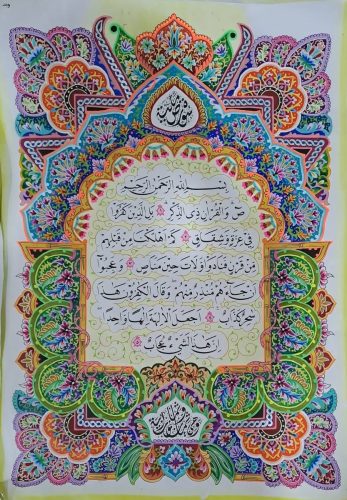 سورة ص مكية
بسم الله الرحمن الرحيم
ص والقرآن ذي الذكر بل الذين كفروا
في عزة وشقاق كم أهلكنا من قبلهم
من قرن فنادوا ولات حين مناص وعجبوا
أن جاءهم منذر منهم وقال الكفرون هذا
سحر كذاب أجعل الآلهة إلها واحدا
إن هذا لشيء عجاب